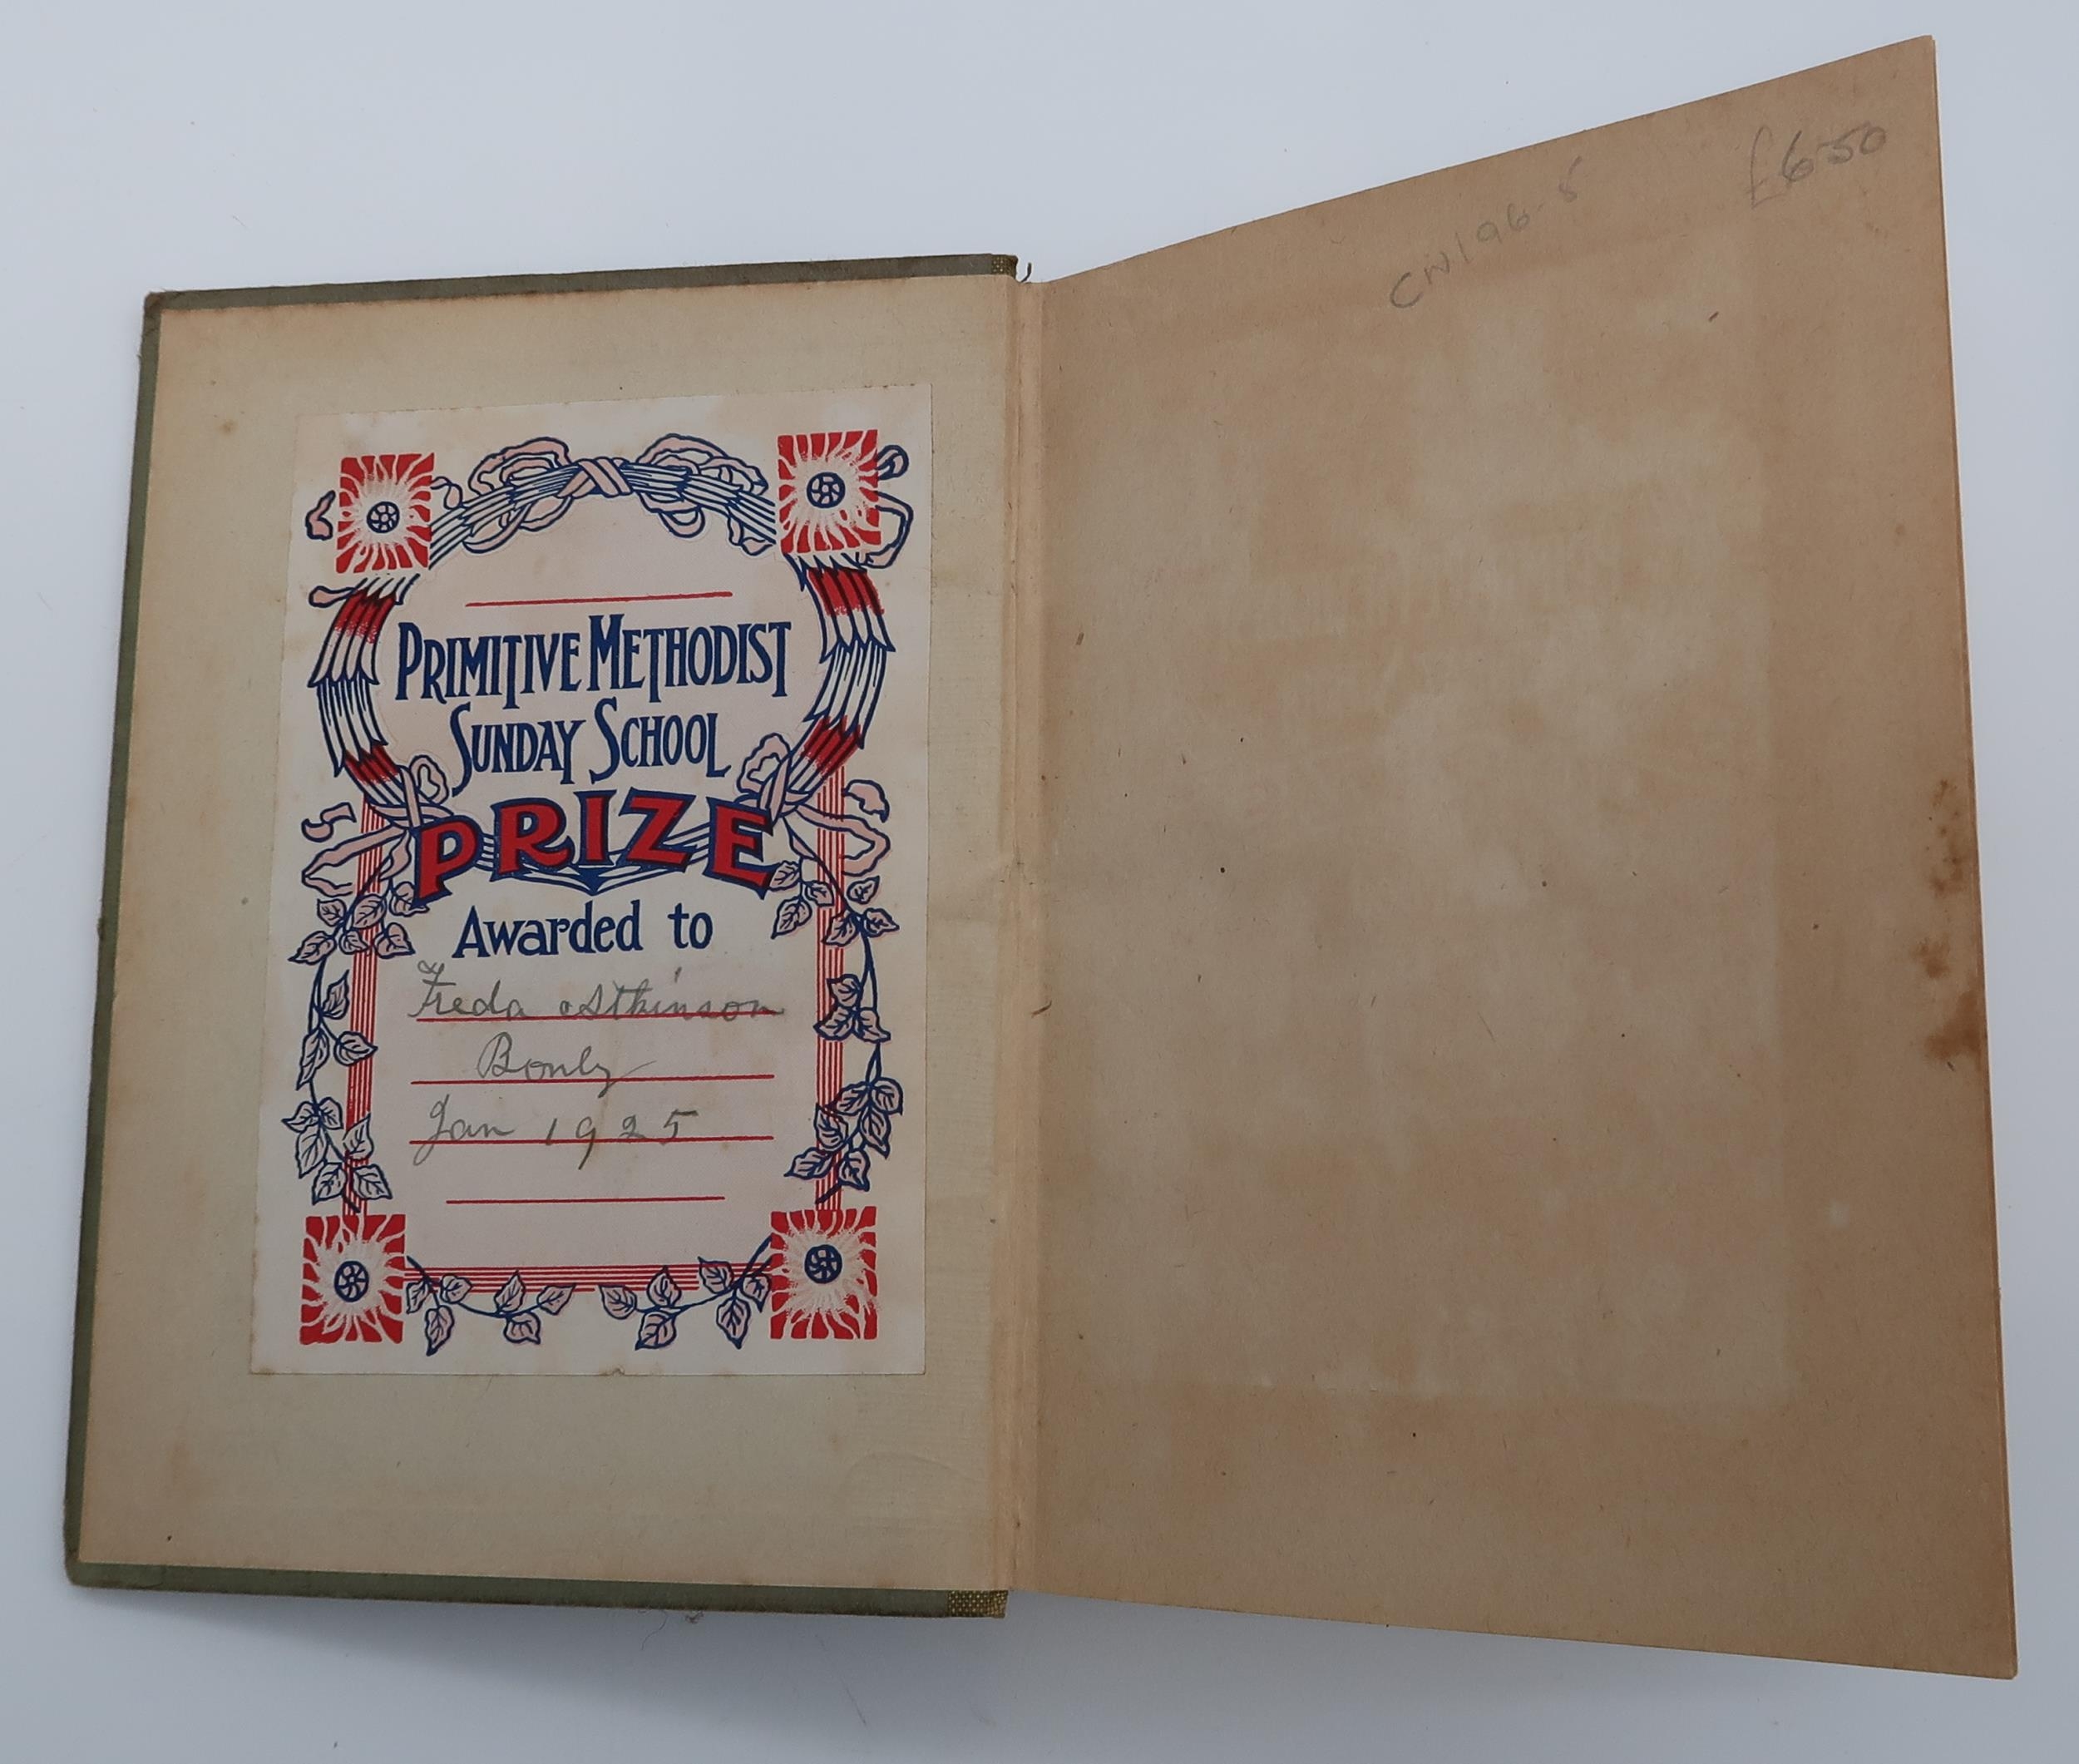 PRIMITIVE METHODIST
SUNDAY SCHOOL
PRIZE
Awarded to
Freda Atkinson
Bonly
Jan 1925
CN196.5
£6-50